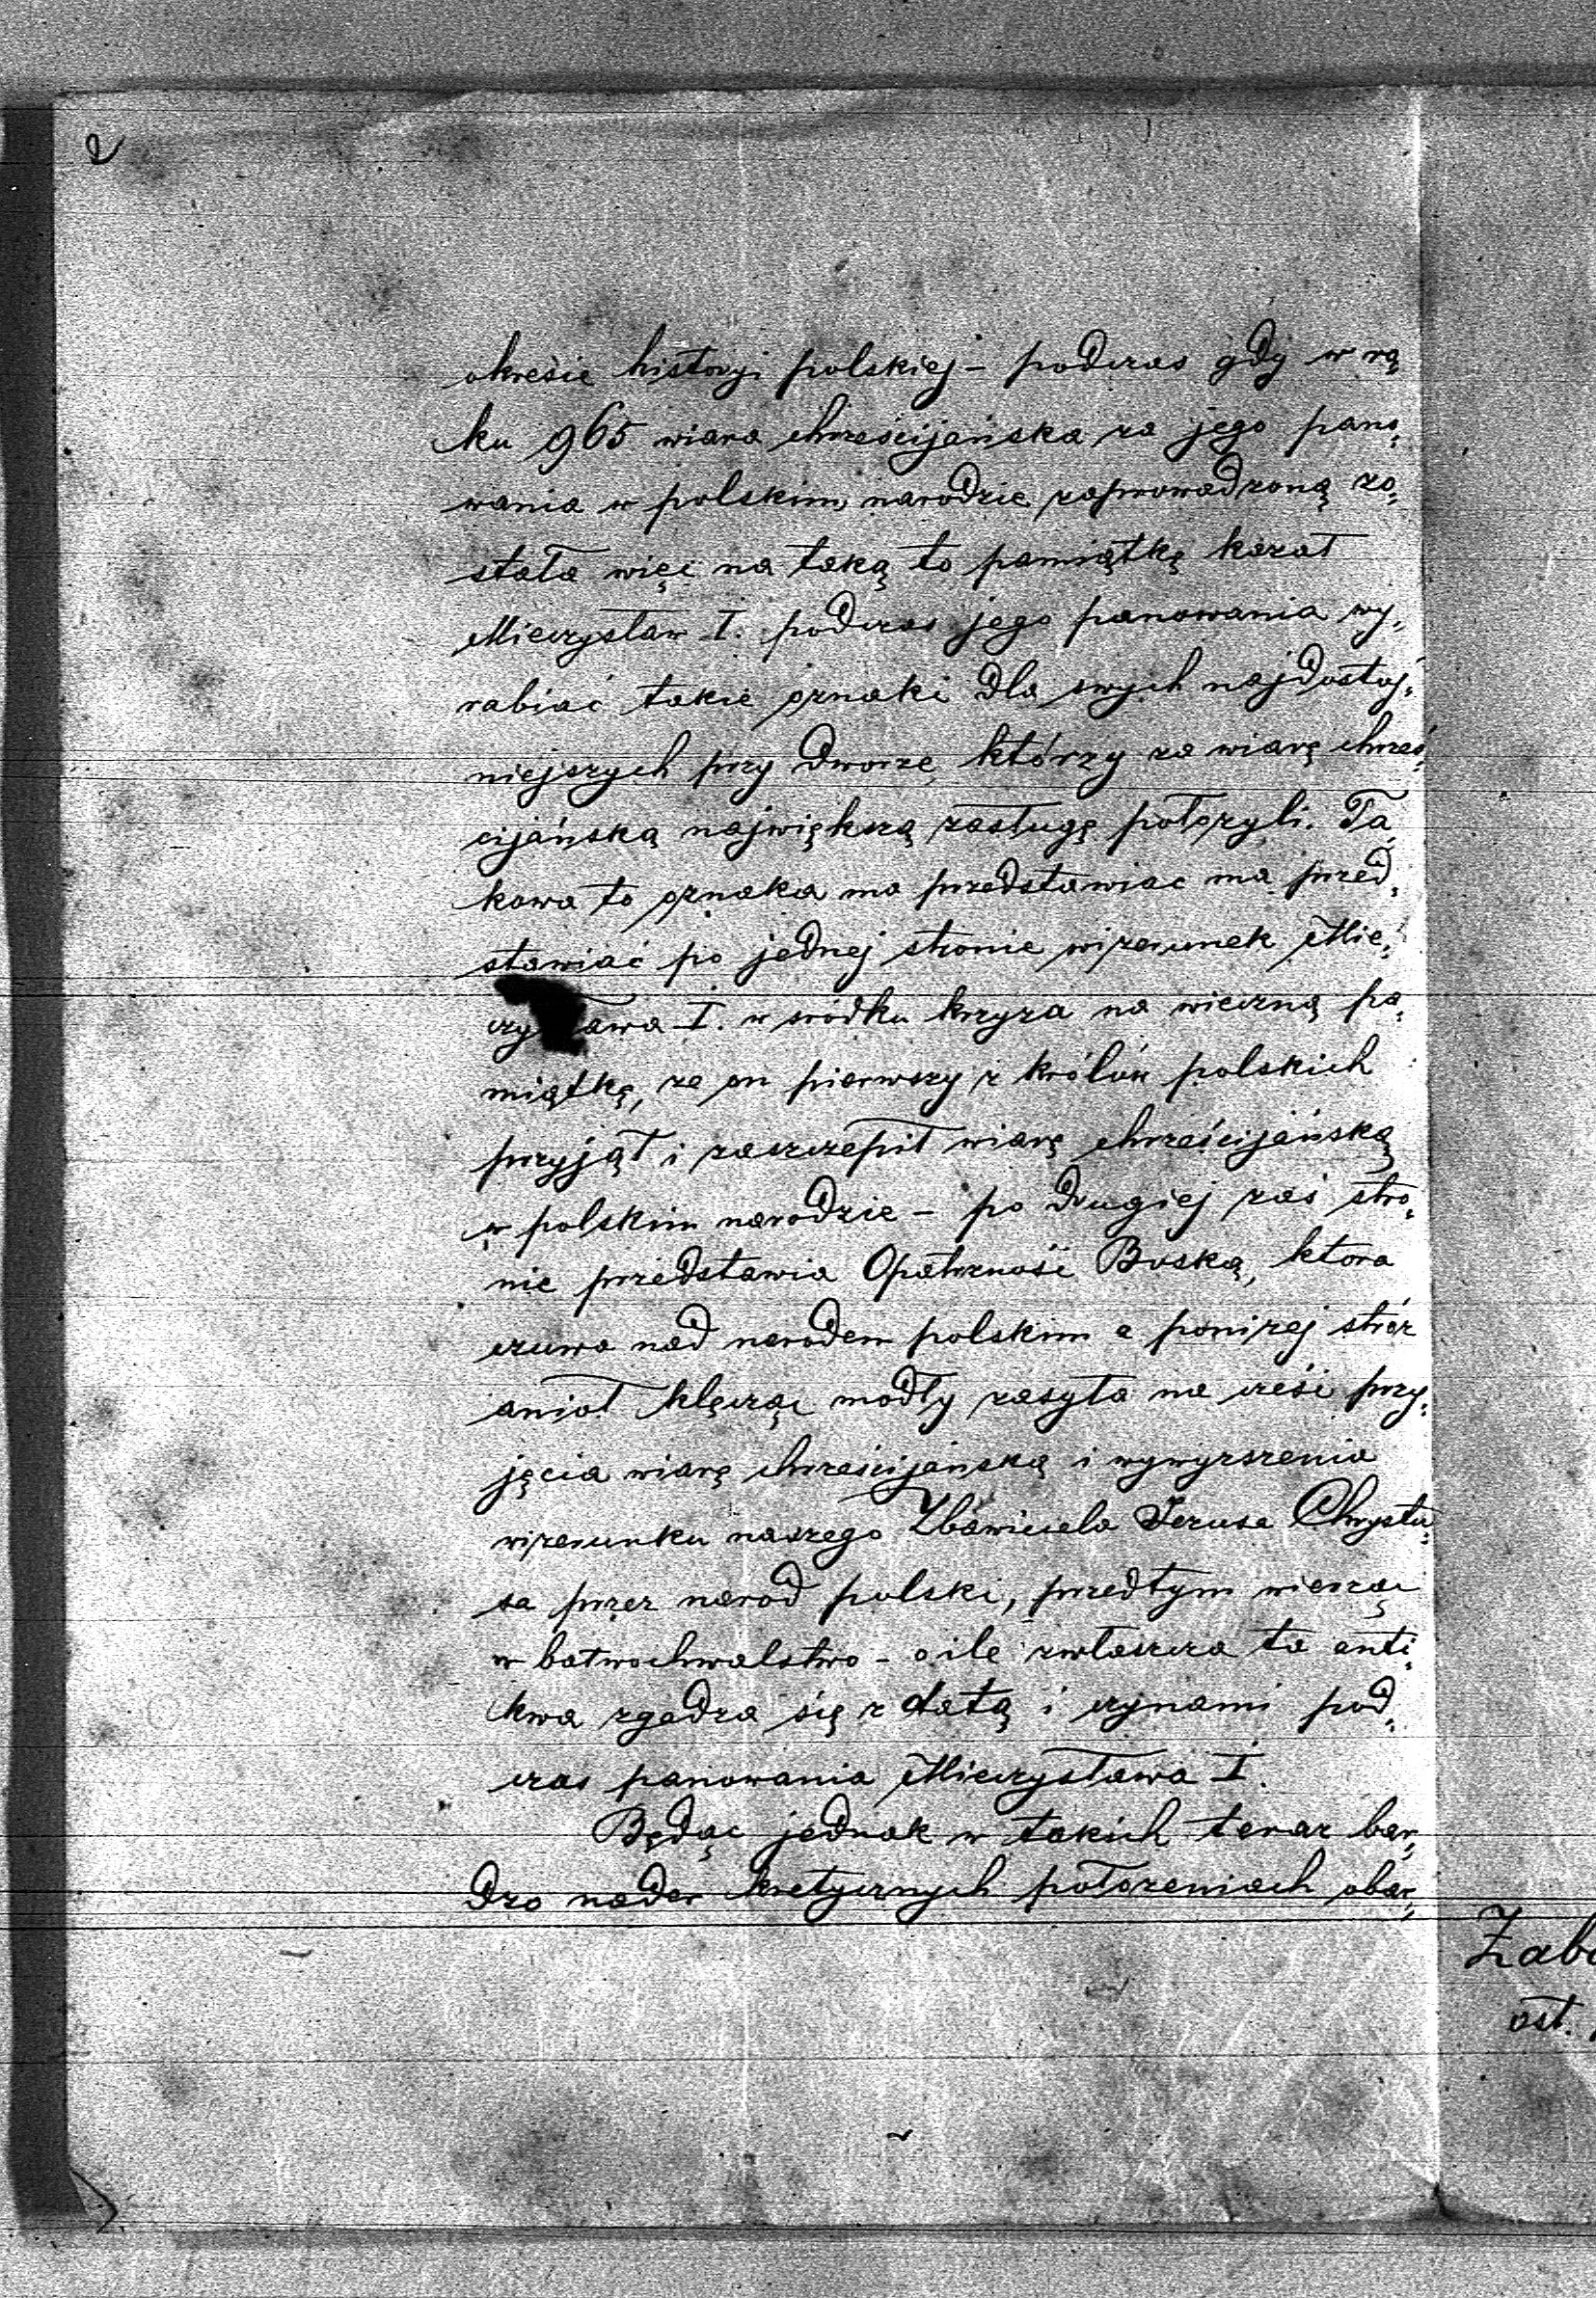 2
okresie historyi polskiej – podczas gdy w ro„
ku 965 wiara chrześcijańska za jego pano„
wania w polskim narodzie zaprowadzoną zo„
stała więc na taką to pamiątkę kazał
Mieczysław I. podczas jego panowania wy„
rabiać takie oznaki dla swych najdostoj„
niejszych przy dworze, którzy za wiarę chrześ„
cijańską największą zasługę położyli. Ta„
kowa to oznaka ma przedstawiac ma przed„
stawiać po jednej stronie wizerunek Mie„
czy awa I. w srodku krzyza na wieczną pa„
miątkę, ze on pierwszy z królów polskich
przyjął i zaszczepił wiarę chrześcijańską
w polskim narodzie – po drugiej zaś stro„
nie przedstawia Opatrzność Boską, ktora
czuwa nad narodem polskim a poniżej stróż
anioł klęcząc modły zasyła na cześć przy„
jęcia wiarę chrześcijańską i wywyższenia
wizerunku naszego Zbawiciela Jezusa Chrystu„
sa przez narod polski, przedtym wierząc
w bałwochwalstwo – o ile zwłaszcza ta anti„
kwa zgadza się z datą i czynami pod„
czas panowania Mieczysława I.
Będąc jednak w takich teraz bar„
dzo nader kretycznych położeniach obar„
Zab
ost.